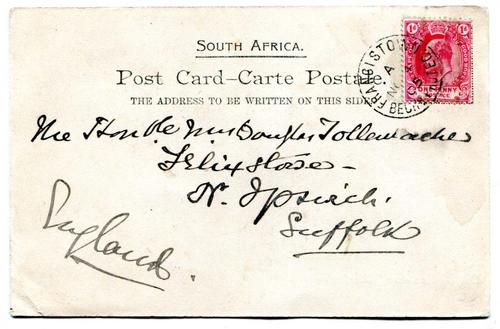 SOUTH AFRICA.
Post Card–Carte Postale.
THE ADDRESS TO BE WRITTEN ON THIS SIDE
1d 1d
ONE PENNY
FRANCISTOWN
A
05
The Honble Mrs Douglas Tollemache
Felixstowe –
Nr. Ipswich.
Suffolk
England.